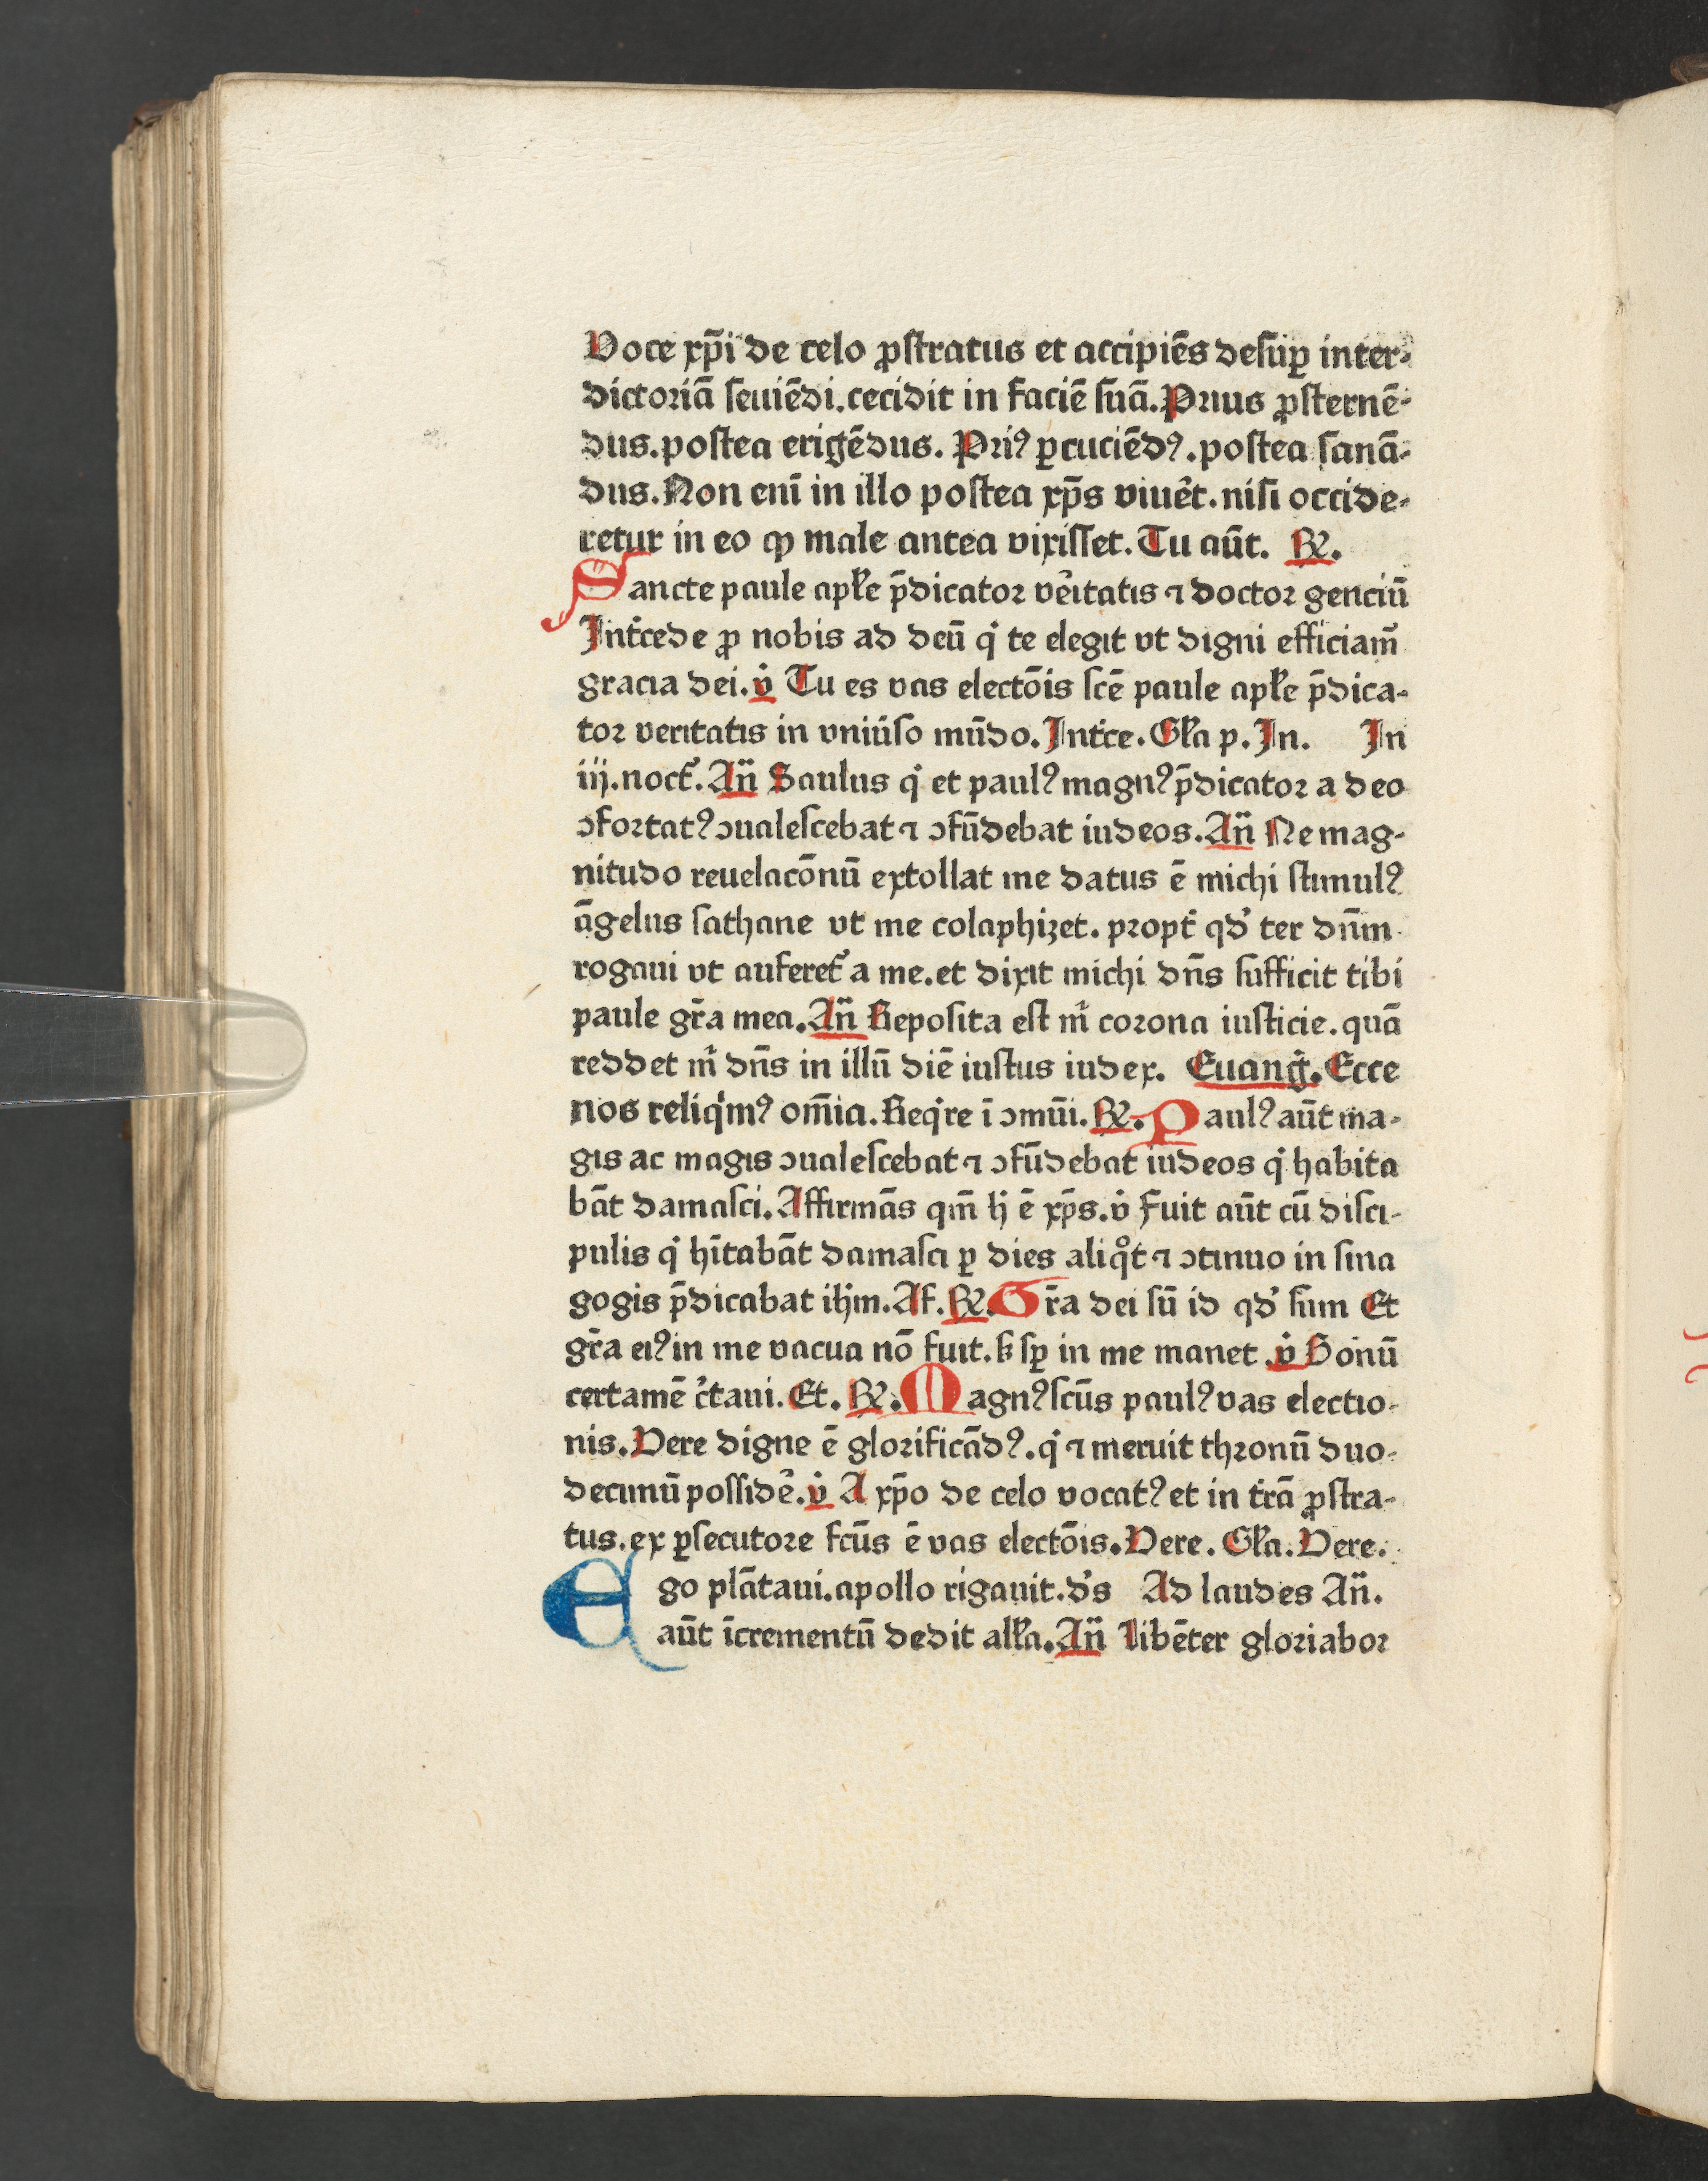 Voce xp̄i de celo ꝓstratus et accipiēs desuꝑ inter-
dictoriā seuiēdi.cecidit in faciē suā.Prius ꝓsternē-
dus.postea erigēdus. Pri⁹ ꝑcuciēd⁹.postea sanā-
dus.Non enī in illo postea xp̄s viuẽt.nisi occide-
retur in eo ꝙ male antea vixisset.Tu aūt. ℟.
Sancte paule apl̄e p̄dicator vẽitatis ⁊ doctor genciū
Int̾cede ꝓ nobis ad deū qͥ te elegit vt digni efficiam̄
gracia dei.℣ Tu es vas electōis scē paule apl̄e p̄dica-
tor veritatis in vniu̾so mūdo.Int̾ce.Gl̄a p.In. In
iij.noct̾.An̄ Saulus qͥ et paul⁹ magn⁹ p̄dicator a deo
ꝯfortat⁹ ꝯualescebat ⁊ ꝯfūdebat iudeos.An̄ Ne mag-
nitudo reuelacōnū extollat me datus ē michi stimul⁹
āgelus sathane vt me colaphizet. propt̾ qd̾ ter dn̄m
rogaui vt auferet̾ a me.et dixit michi dn̄s sufficit tibi
paule gr̄a mea.An̄ Reposita est mͥ corona iusticie.quā
reddet mͥ dn̄s in illū diē iustus iudex. Euang̾.Ecce
nos reliqͥm⁹ om̄ia.Reqͥre ī ꝯmūi.℟.Paul⁹ aūt ma-
gis ac magis ꝯualescebat ⁊ ꝯfūdebat iudeos qͥ habita
bāt damasci.Affirmās qm̄ hͥ ē xp̄s.℣ Fuit aūt cū disci-
pulis qͥ hītabāt damasci ꝑ dies aliqͦt ⁊ ꝯtinuo in sina
gogis p̄dicabat ih̄m.Af.℟.Gr̄a dei sū id qd̾ sum Et
gr̄a ei⁹ in me vacua nō fuit.ꝭ sꝑ in me manet.℣ Bonū
certamē c̾taui.Et.℟.Magn⁹ scūs paul⁹ vas electio-
nis.Vere digne ē glorificād⁹.qͥ ⁊ meruit thronū duo-
decimū possidẽ.℣ A xp̄o de celo vocat⁹ et in t̾rā ꝓstra-
tus.ex ꝑsecutore fcūs ē vas electōis.Vere.Gl̄a.Vere.
Ego plātaui.apollo rigauit.d̾s Ad laudes An̄.
aūt īcrementū dedit all̄a.An̄ Libēter gloriabor